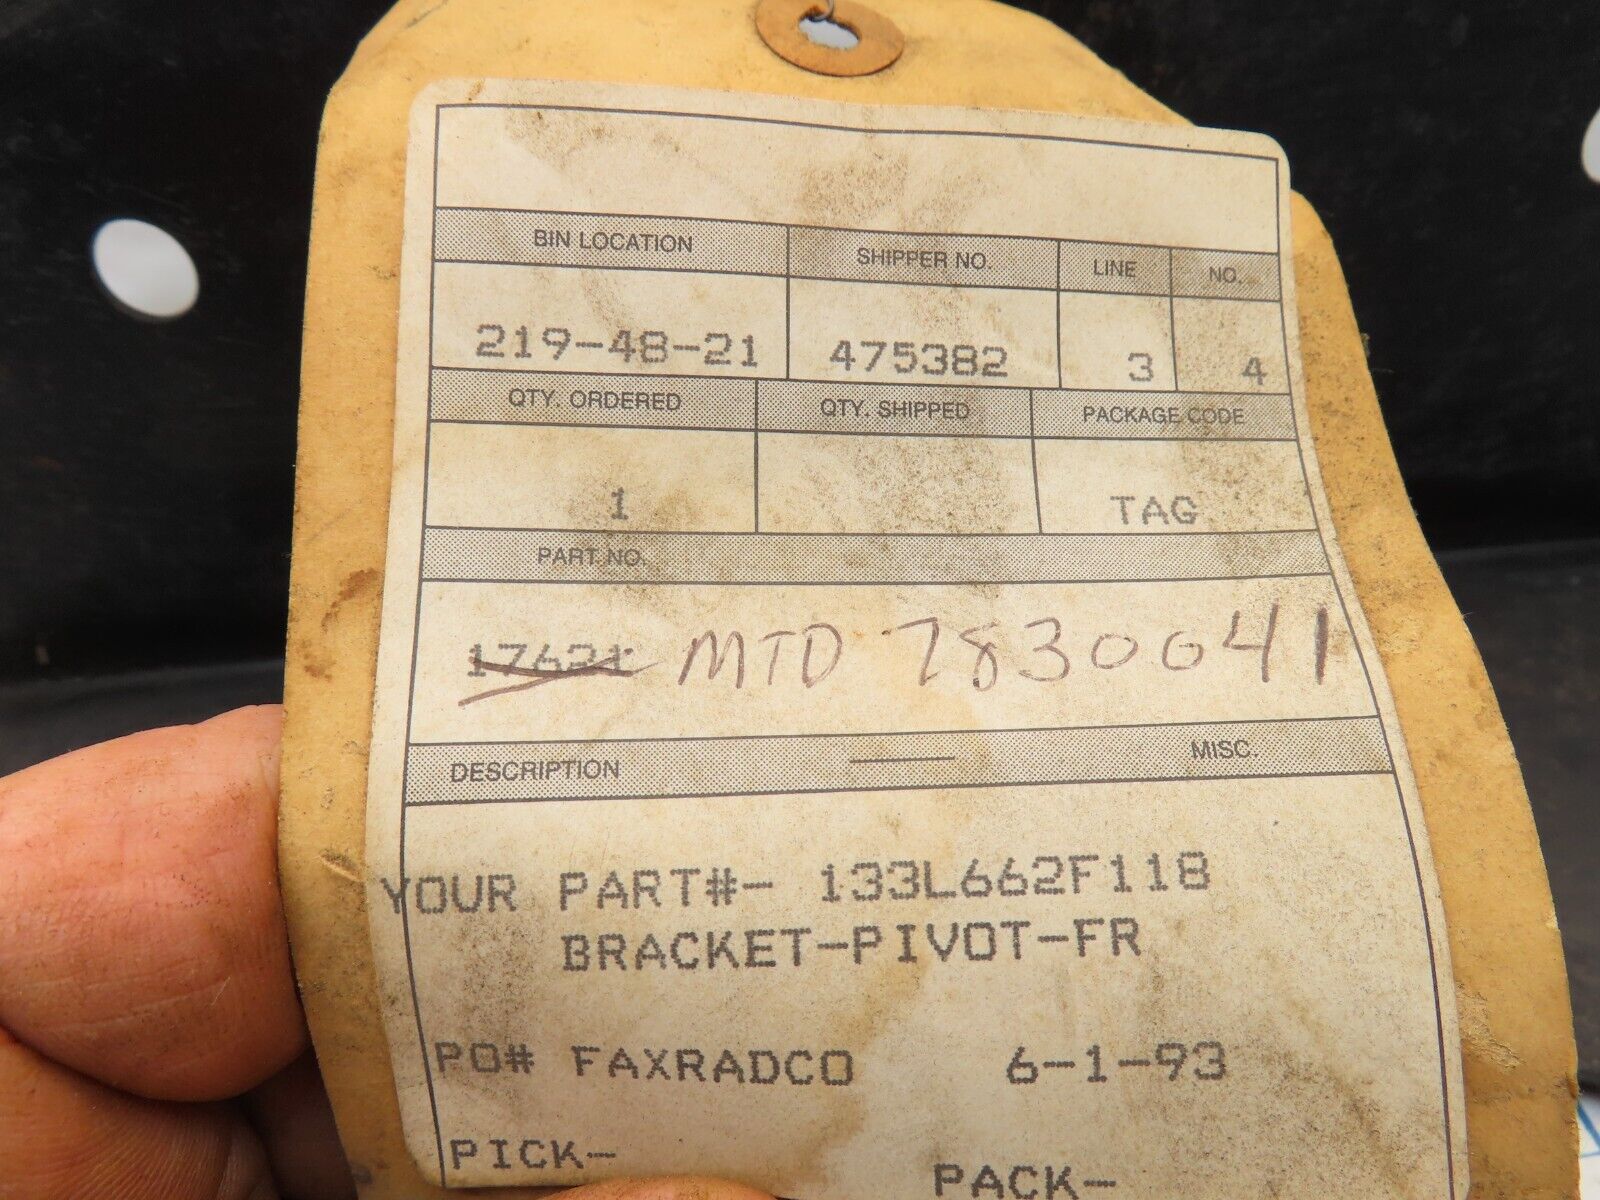 BIN LOCATION SHIPPER NO. LINE NO.
219-48-21 475382 3 4
QTY. ORDERED QTY. SHIPPED PACKAGE CODE
1 TAG
PART NO.
17621 MTD 7830041
DESCRIPTION MISC.
YOUR PART#- 133L662F118
BRACKET-PIVOT-FR
PO# FAXRADCO 6-1-93
PICK- PACK-